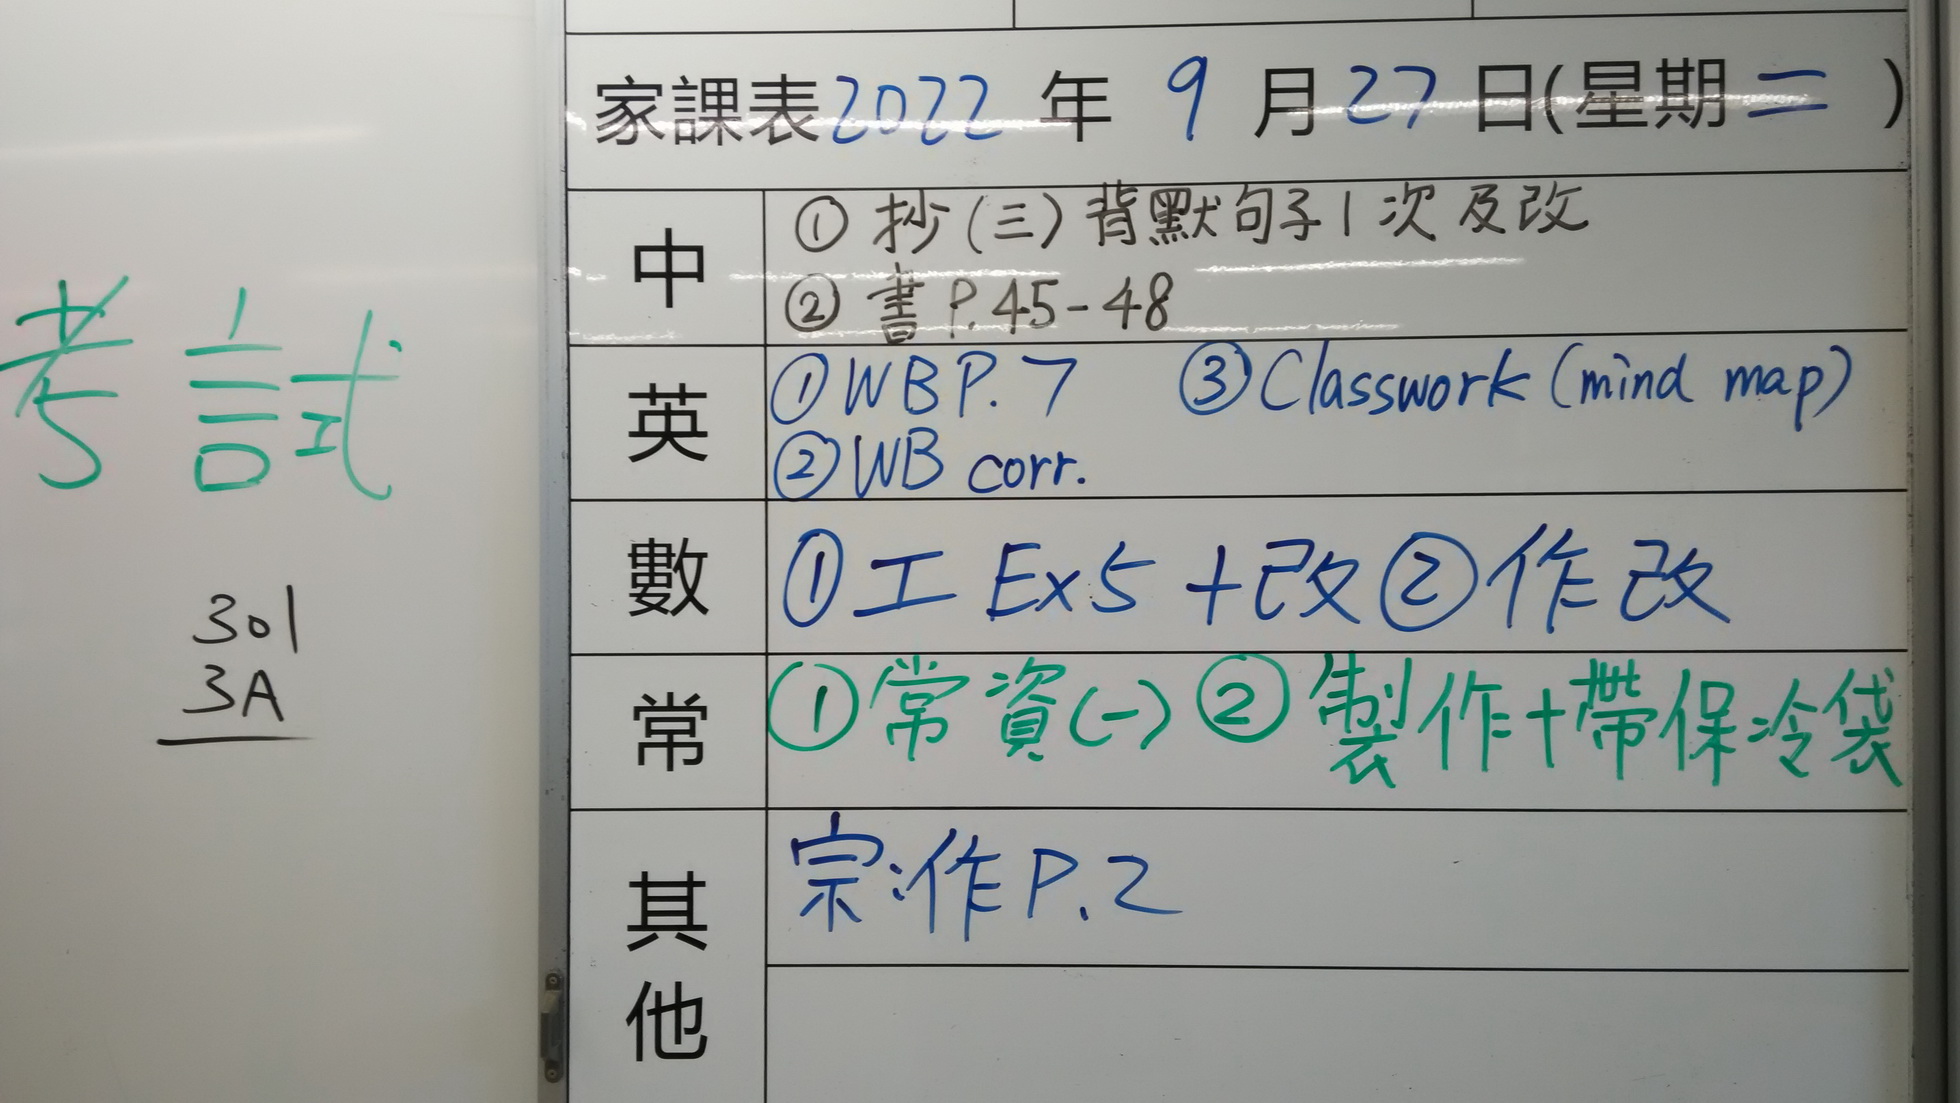 考試
301
3A
家課表2022年 9月27日(星期二)
中
① 抄(三)背默句子1次及改
② 書P.45-48
英
①WBP.7 ③Classwork (mind map)
②WB corr.
數
①工 Ex5 +改②作改
常
①常資(一)②製作+帶保冷袋
其他
宗:作P.2